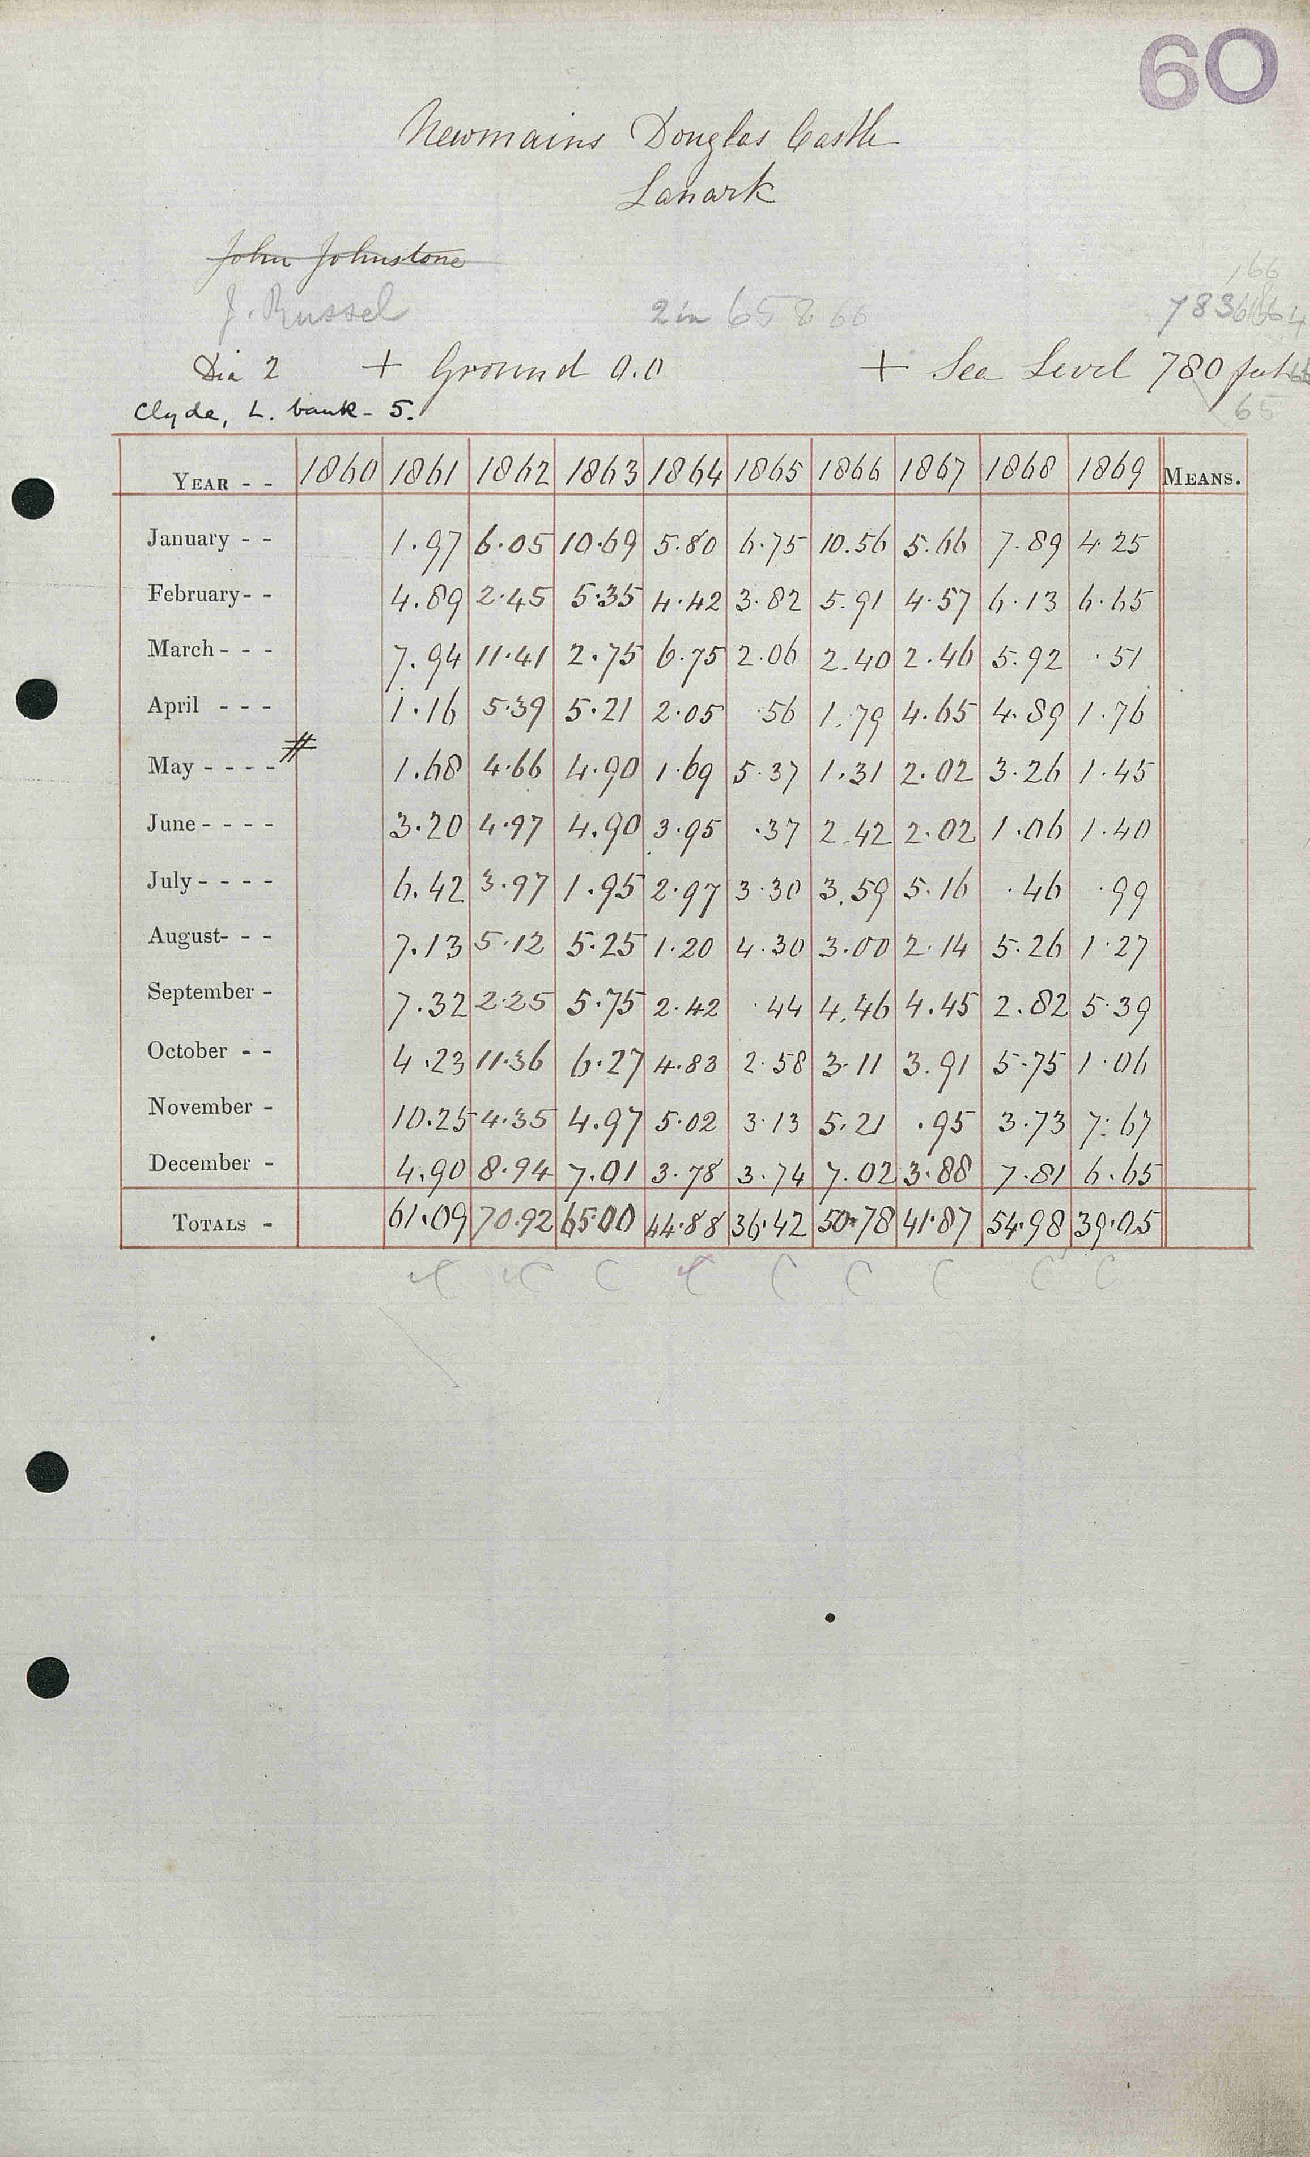 60
Newmains Douglas Castle
Lanark
John Johnstone
J. Russel 2 in 65 & 66
Dia 2 + Ground 0.0 + Sea Level 780 feet
65
Clyde, L. bank - 5.
YEAR - - 1860 1861 1862 1863 1864 1865 1866 1867 1868 1869 MEANS.
January - - 1.97 6.05 10.69 5.80 6.75 10.56 5.66 7.89 4.25
February - - 4.89 2.45 5.35 4.42 3.82 5.91 4.57 6.13 6.65
March - - - 7.94 11.41 2.75 6.75 2.06 2.40 2.46 5.92 .51
April - - - 1.16 5.39 5.21 2.05 .56 1.79 4.65 4.89 1.76
May - - - - # 1.68 4.66 4.90 1.69 5.37 1.31 2.02 3.26 1.45
June - - - - 3.20 4.97 4.90 3.95 .37 2.42 2.02 1.06 1.40
July - - - - 6.42 3.97 1.95 2.97 3.30 3.59 5.16 .46 .99
August - - - 7.13 5.12 5.25 1.20 4.30 3.00 2.14 5.26 1.27
September - 7.32 2.25 5.75 2.42 .44 4.46 4.45 2.82 5.39
October - - 4.23 11.36 6.27 4.83 2.58 3.11 3.91 5.75 1.06
November - 10.25 4.35 4.97 5.02 3.13 5.21 .95 3.73 7.67
December - 4.90 8.94 7.01 3.78 3.74 7.02 3.88 7.81 6.65
TOTALS - 61.09 70.92 65.00 44.88 36.42 50.78 41.87 54.98 39.05